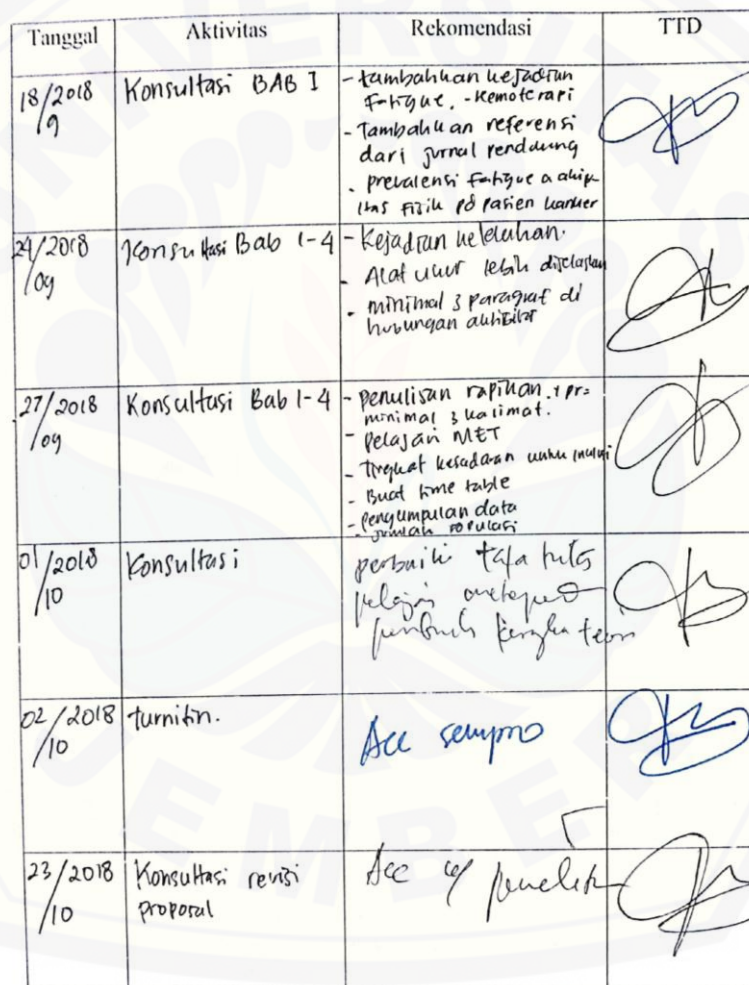 UNIVERSITAS
JEMBER
Tanggal Aktivitas Rekomendasi TTD
18/2018
/9
Konsultasi BAB I
- tambahkan kejadian
Fatigue. - Kemoterapi
- Tambahkan referensi
dari jurnal pendukung
- prevalensi Fatigue
itas Fisik pd pasien kanker
24/2018
/09
Konsultasi Bab 1-4
- Kejadian kelelahan.
- Alat ukur lebih dijelaskan
- minimal 3 paragraf di
hubungan aktivitas
27/2018
/09
Konsultasi Bab 1-4
- penulisan rapihan.
minimal 3 kalimat.
- pelajari MET
- Tingkat kesadaran untuk inklusi
- Buat time table
- pengumpulan data
- jumlah populasi
01/2018
/10
Konsultasi
perbaiki tata tulis
pelajari
kerangka teori
02/2018
/10
turnitin.
Acc sempro
23/2018
/10
Konsultasi revisi
proposal
Acc penelitian